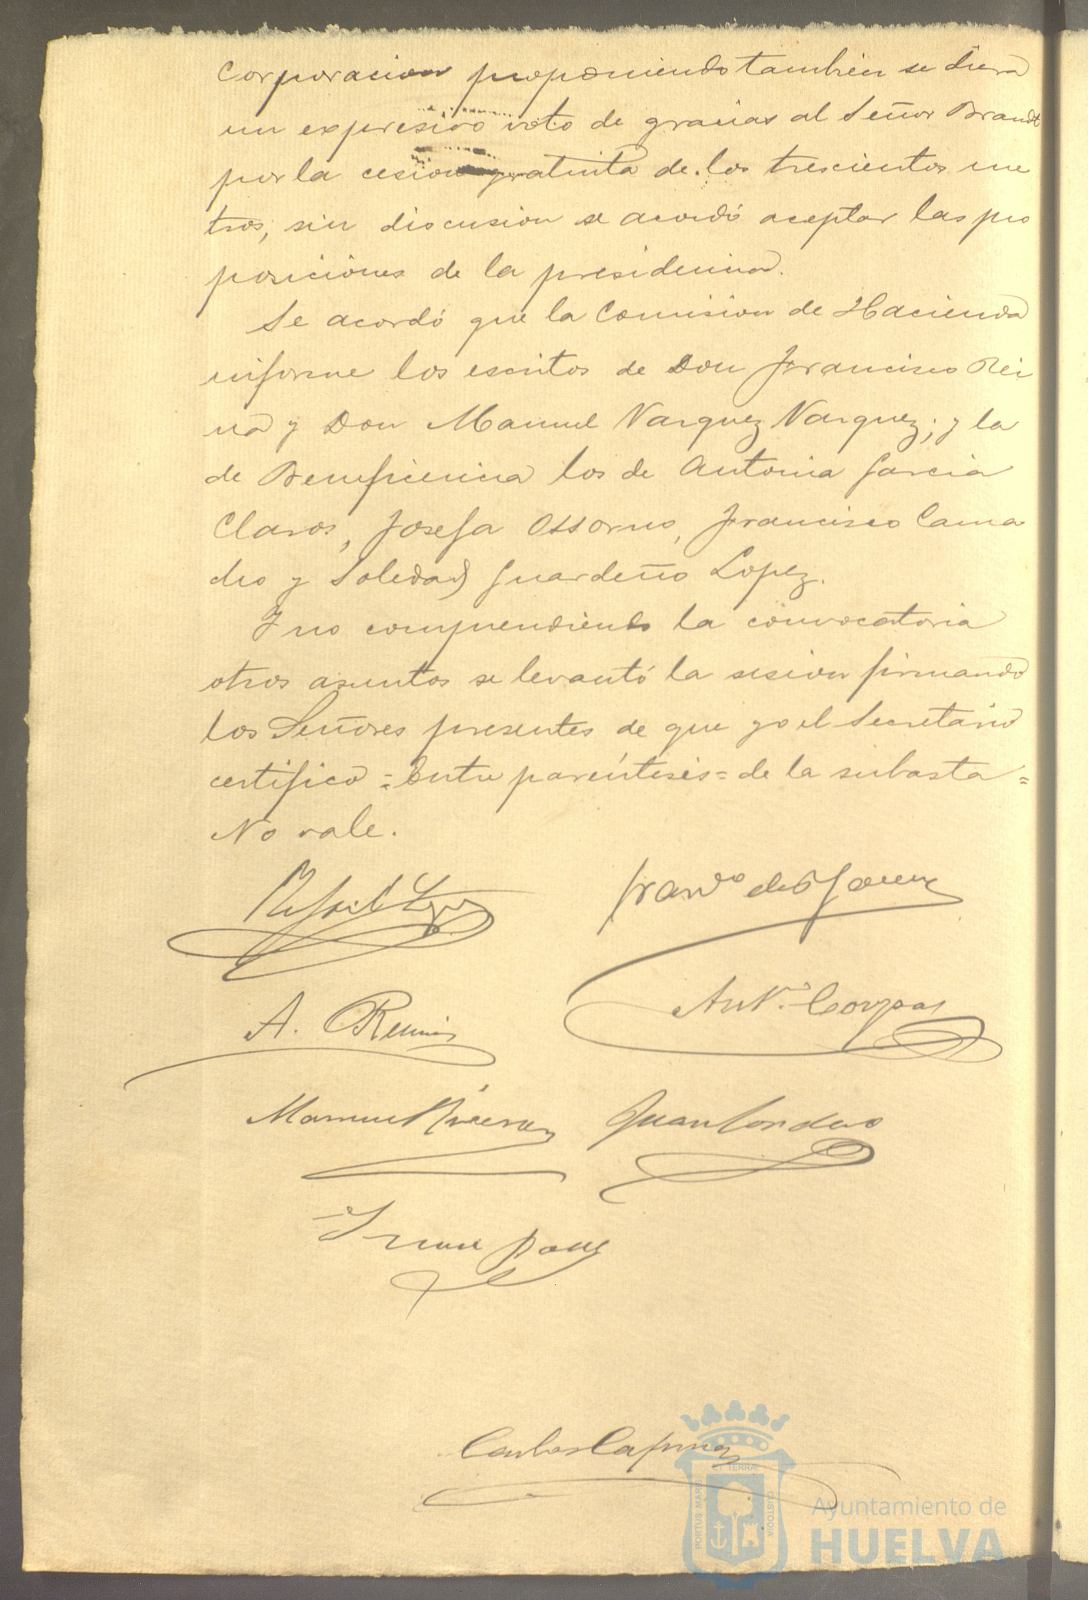 Corporacion proponiendo tambien se diera
un expresivo voto de gracias al Señor Brandt
por la cesion gratuita de los trescientos me
tros, sin discusion se acordó aceptar las pro
posiciones de la presidencia.
Se acordó que la Comision de Hacienda
informe los escritos de Don Francisco Rei
na y Don Manuel Vazquez Vazquez; y la
de Beneficencia los de Antonia Garcia
Claros, Josefa Ossorno, Francisco Cama
cho y Soledad Guardeño Lopez.
Y no comprendiendo la convocatoria
otros asuntos se levantó la sesion firmando
los Señores presentes de que yo el Secretario
certifico = Entre paréntesis = de la subasta =
No vale.
A.
Antº
Manuel Juan Cordero
Carlos
PORTUS MARIS ET TERRÆ CUSTODIA
Ayuntamiento de
HUELVA